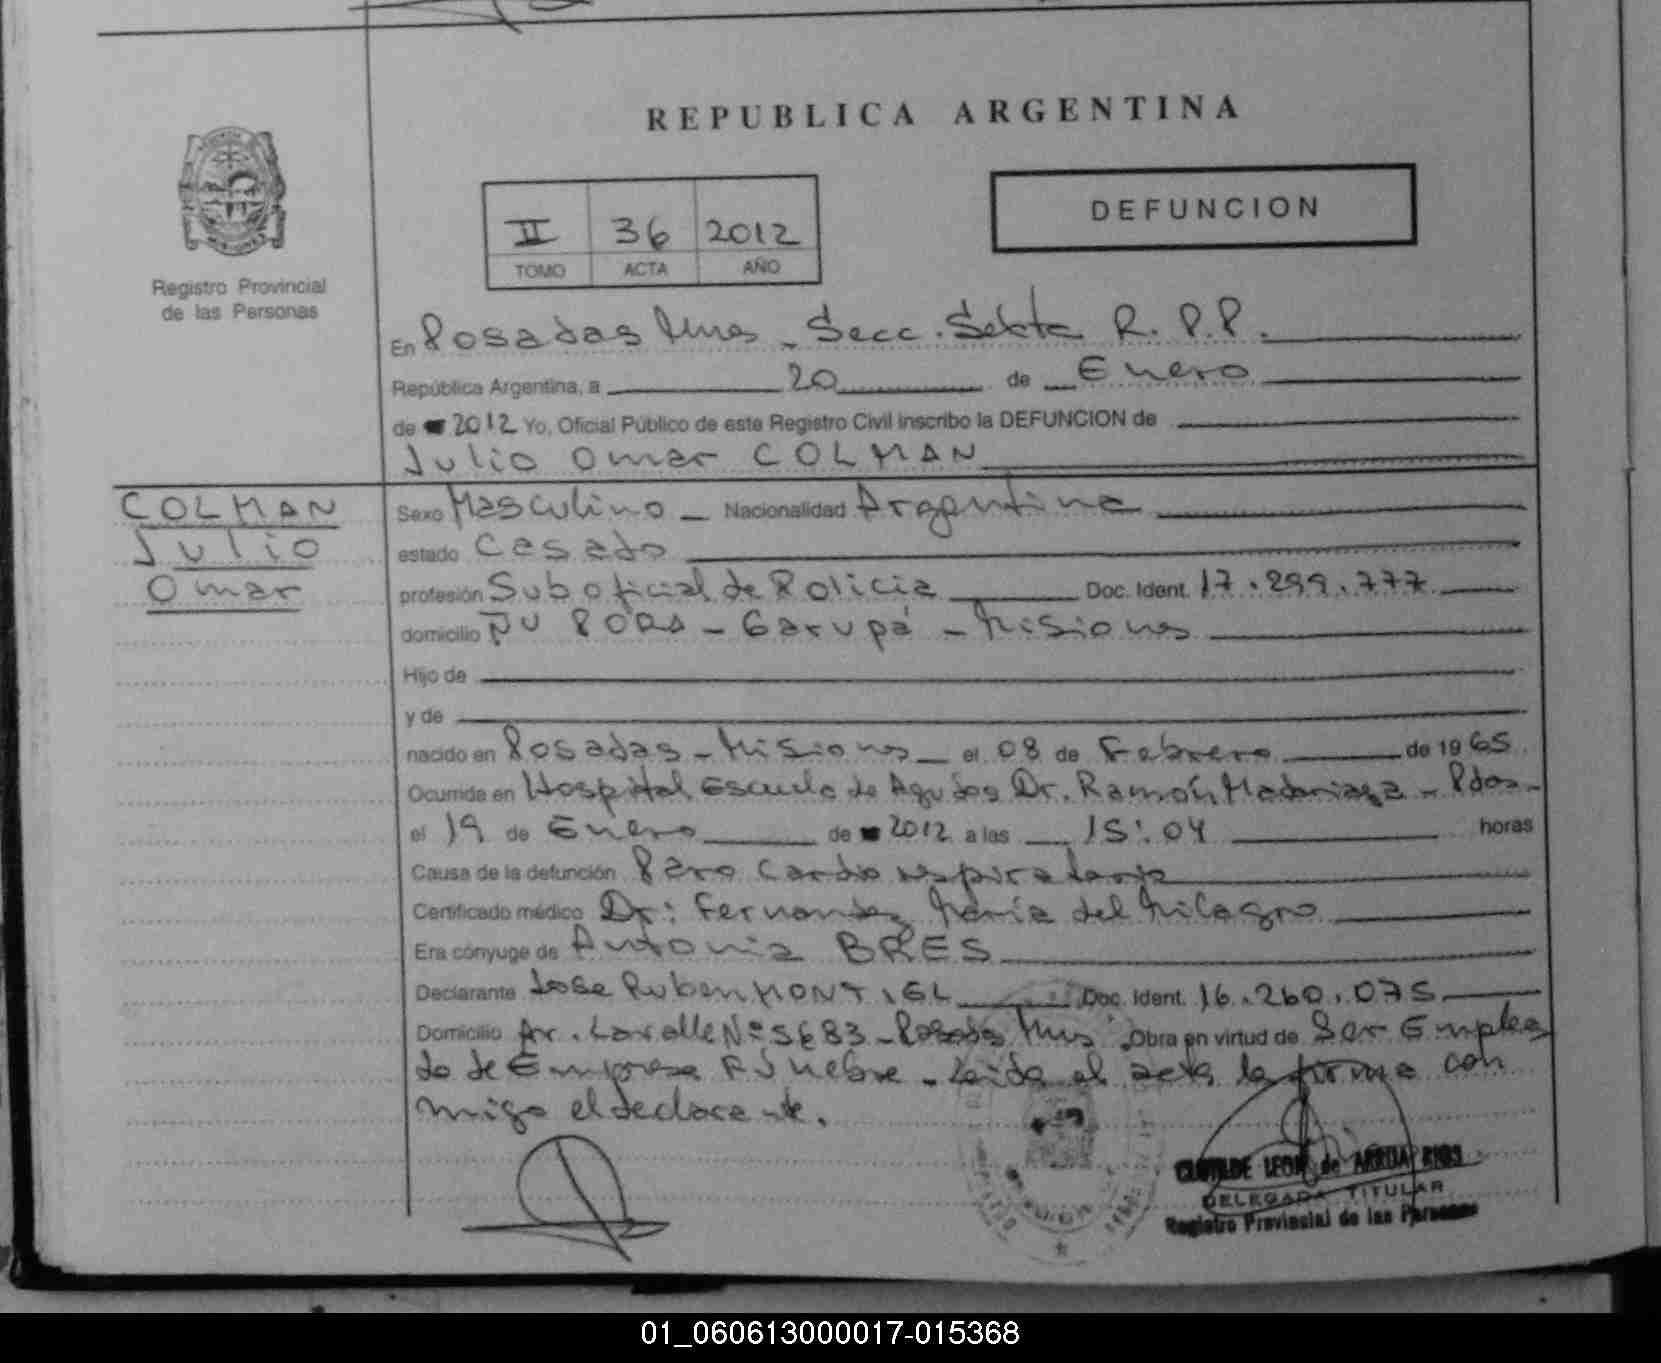 REPUBLICA ARGENTINA
DEFUNCION
II 36 2012
TOMO ACTA AÑO
Registro Provincial
de las Personas
En Posadas Mnes - Secc. Sexta R.P.P.
República Argentina, a 20 de Enero
de 2012 Yo, Oficial Público de este Registro Civil inscribo la DEFUNCION de
Julio Omar COLMAN
COLMAN
Julio
Omar
Sexo Masculino - Nacionalidad Argentina
estado Casado
profesión Suboficial de Policia Doc. Ident. 17.299.777
domicilio ÑU PORA - Garupá - Misiones
Hijo de
y de
nacido en Posadas - Misiones - el 08 de Febrero de 1965
Ocurrida en Hospital Escuela de Agudos Dr. Ramón Madariaga - Pdas -
el 19 de Enero de 2012 a las 15:04 horas
Causa de la defunción Paro Cardio respiratorio
Certificado médico Dr: Fernandez María del Milagro
Era cónyuge de Antonia BRES
Declarante Jose Ruben MONTIEL Doc. Ident. 16.260.075
Domicilio Av. Lavalle Nº 5683 - Posadas Mnes Obra en virtud de Ser Emplea
do de Empresa Fúnebre - Leida el acta la firma con
migo el declarante.
CLOTILDE LEON de ARRUA RIOS
DELEGADA TITULAR
Registro Provincial de las Personas
01_060613000017-015368